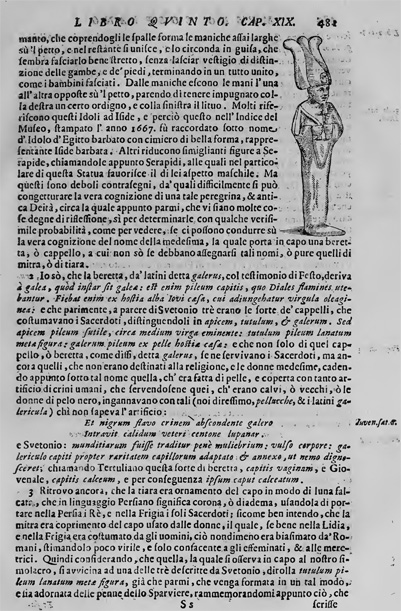 LIBRO QVINTO. CAP. XIX. 481
manto, che coprendogli le spalle forma le maniche assai larghe
sù 'l petto, e nel restante si unisce, e lo circonda in guisa, che
sembra fasciarlo bene stretto, senza lasciar vestigio di distin-
zione delle gambe, e de' piedi, terminando in un tutto unito,
come i bambini fasciati. Dalle maniche escono le mani l'una
all'altra opposte sù 'l petto, parendo di tenere impugnato col-
la destra un certo ordigno, e colla sinistra il lituo. Molti rife-
riscono questi Idoli ad Iside, e perciò questo nell'Indice del
Museo, stampato l'anno 1667. fù raccordato sotto nome
d'Idolo d'Egitto barbato con cimiero di bella forma, rappre-
sentante Iside barbata. Altri riducono simiglianti figure a Se-
rapide, chiamandole appunto Serapidi, alle quali nel partico-
lare di questa Statua fauorisce il di lei aspetto maschile. Ma
questi sono deboli contrasegni, da' quali difficilmente si può
congetturare la vera cognizione di una tale peregrina, & anti-
ca Deità, circa la quale appunto parmi, che vi siano molte co-
se degne di riflessione, sì per determinarle con qualche verisi-
mile probabilità, come per vedere, se ci possono condurre sù
la vera cognizione del nome della medesima, la quale porta in capo una beret-
ta, ò cappello, a cui non sò se debbano assegnarsi tali nomi, ò pure quelli di
mitra, ò di tiara.
2 Io sò, che la beretta, da' latini detta galerus, col testimonio di Festo, deriva
à galea, quòd instar sit galeæ: est enim pileum capitis, quo Diales flamines ute-
bantur. Fiebat enim ex hostia alba Iovi cæsa, cui adjungebatur virgula oleagi-
nea: e che parimente, a parere di Svetonio trè erano le sorte de' cappelli, che
costumavano i Sacerdoti, distinguendoli in apicem, tutulum, & galerum. Sed
apicem pileum sutile, circa medium virga eminente: tutulum pileum lanatum
metæ figura: galerum pileum ex pelle hostiæ cæsæ: e che non solo di quei cap-
pelli, ò berette, come dissi, detta galerus, se ne servivano i Sacerdoti, ma an-
cora quelli, che non erano destinati alla religione, e le donne medesime, caden-
do appunto sotto tal nome quella, ch'era fatta di pelle, e coperta con tanto ar-
tificio di crini umani, che servendosene quei, ch'erano calvi, ò vecchi, ò le
donne di pelo nero, ingannavano con tali (noi diressimo, pellucche, & i latini ga-
lericula) chi non sapeva l'artificio:
Et nigrum flavo crinem abscondente galero
Intravit calidum veteri centone lupanar.
e Svetonio: munditiarum fuisse traditur penè muliebrium: vulso corpore: ga-
lericulo capiti propter raritatem capillorum adaptato & annexo, ut nemo digno-
sceret; chiamando Tertuliano questa sorte di beretta, capitis vaginam, e Gio-
venale, capitis calceum, e per conseguenza ipsum caput calceatum.
3 Ritrovo ancora, che la tiara era ornamento del capo in modo di luna fal-
cata, che in linguaggio Persiano significa corona, ò diadema, usandola di por-
tare nella Persia i Rè, e nella Frigia i soli Sacerdoti; sicome ben intendo, che la
mitra era coprimento del capo usato dalle donne, il quale, se bene nella Lidia,
e nella Frigia era costumato da gli uomini, ciò nondimeno era biasimato da' Ro-
mani, stimandolo poco virile, e solo confacente a gli effeminati, & alle mere-
trici. Quindi considerando, che quella, la quale si osserva in capo al nostro si-
molacro, si avvicina ad una delle trè descritte da Svetonio, dirolla tutulum pi-
leum lanatum metæ figura, già che parmi, che venga formata in un tal modo,
e sia adornata delle penne dello Sparviere, rammemorandomi appunto ciò, che
Ss scrisse